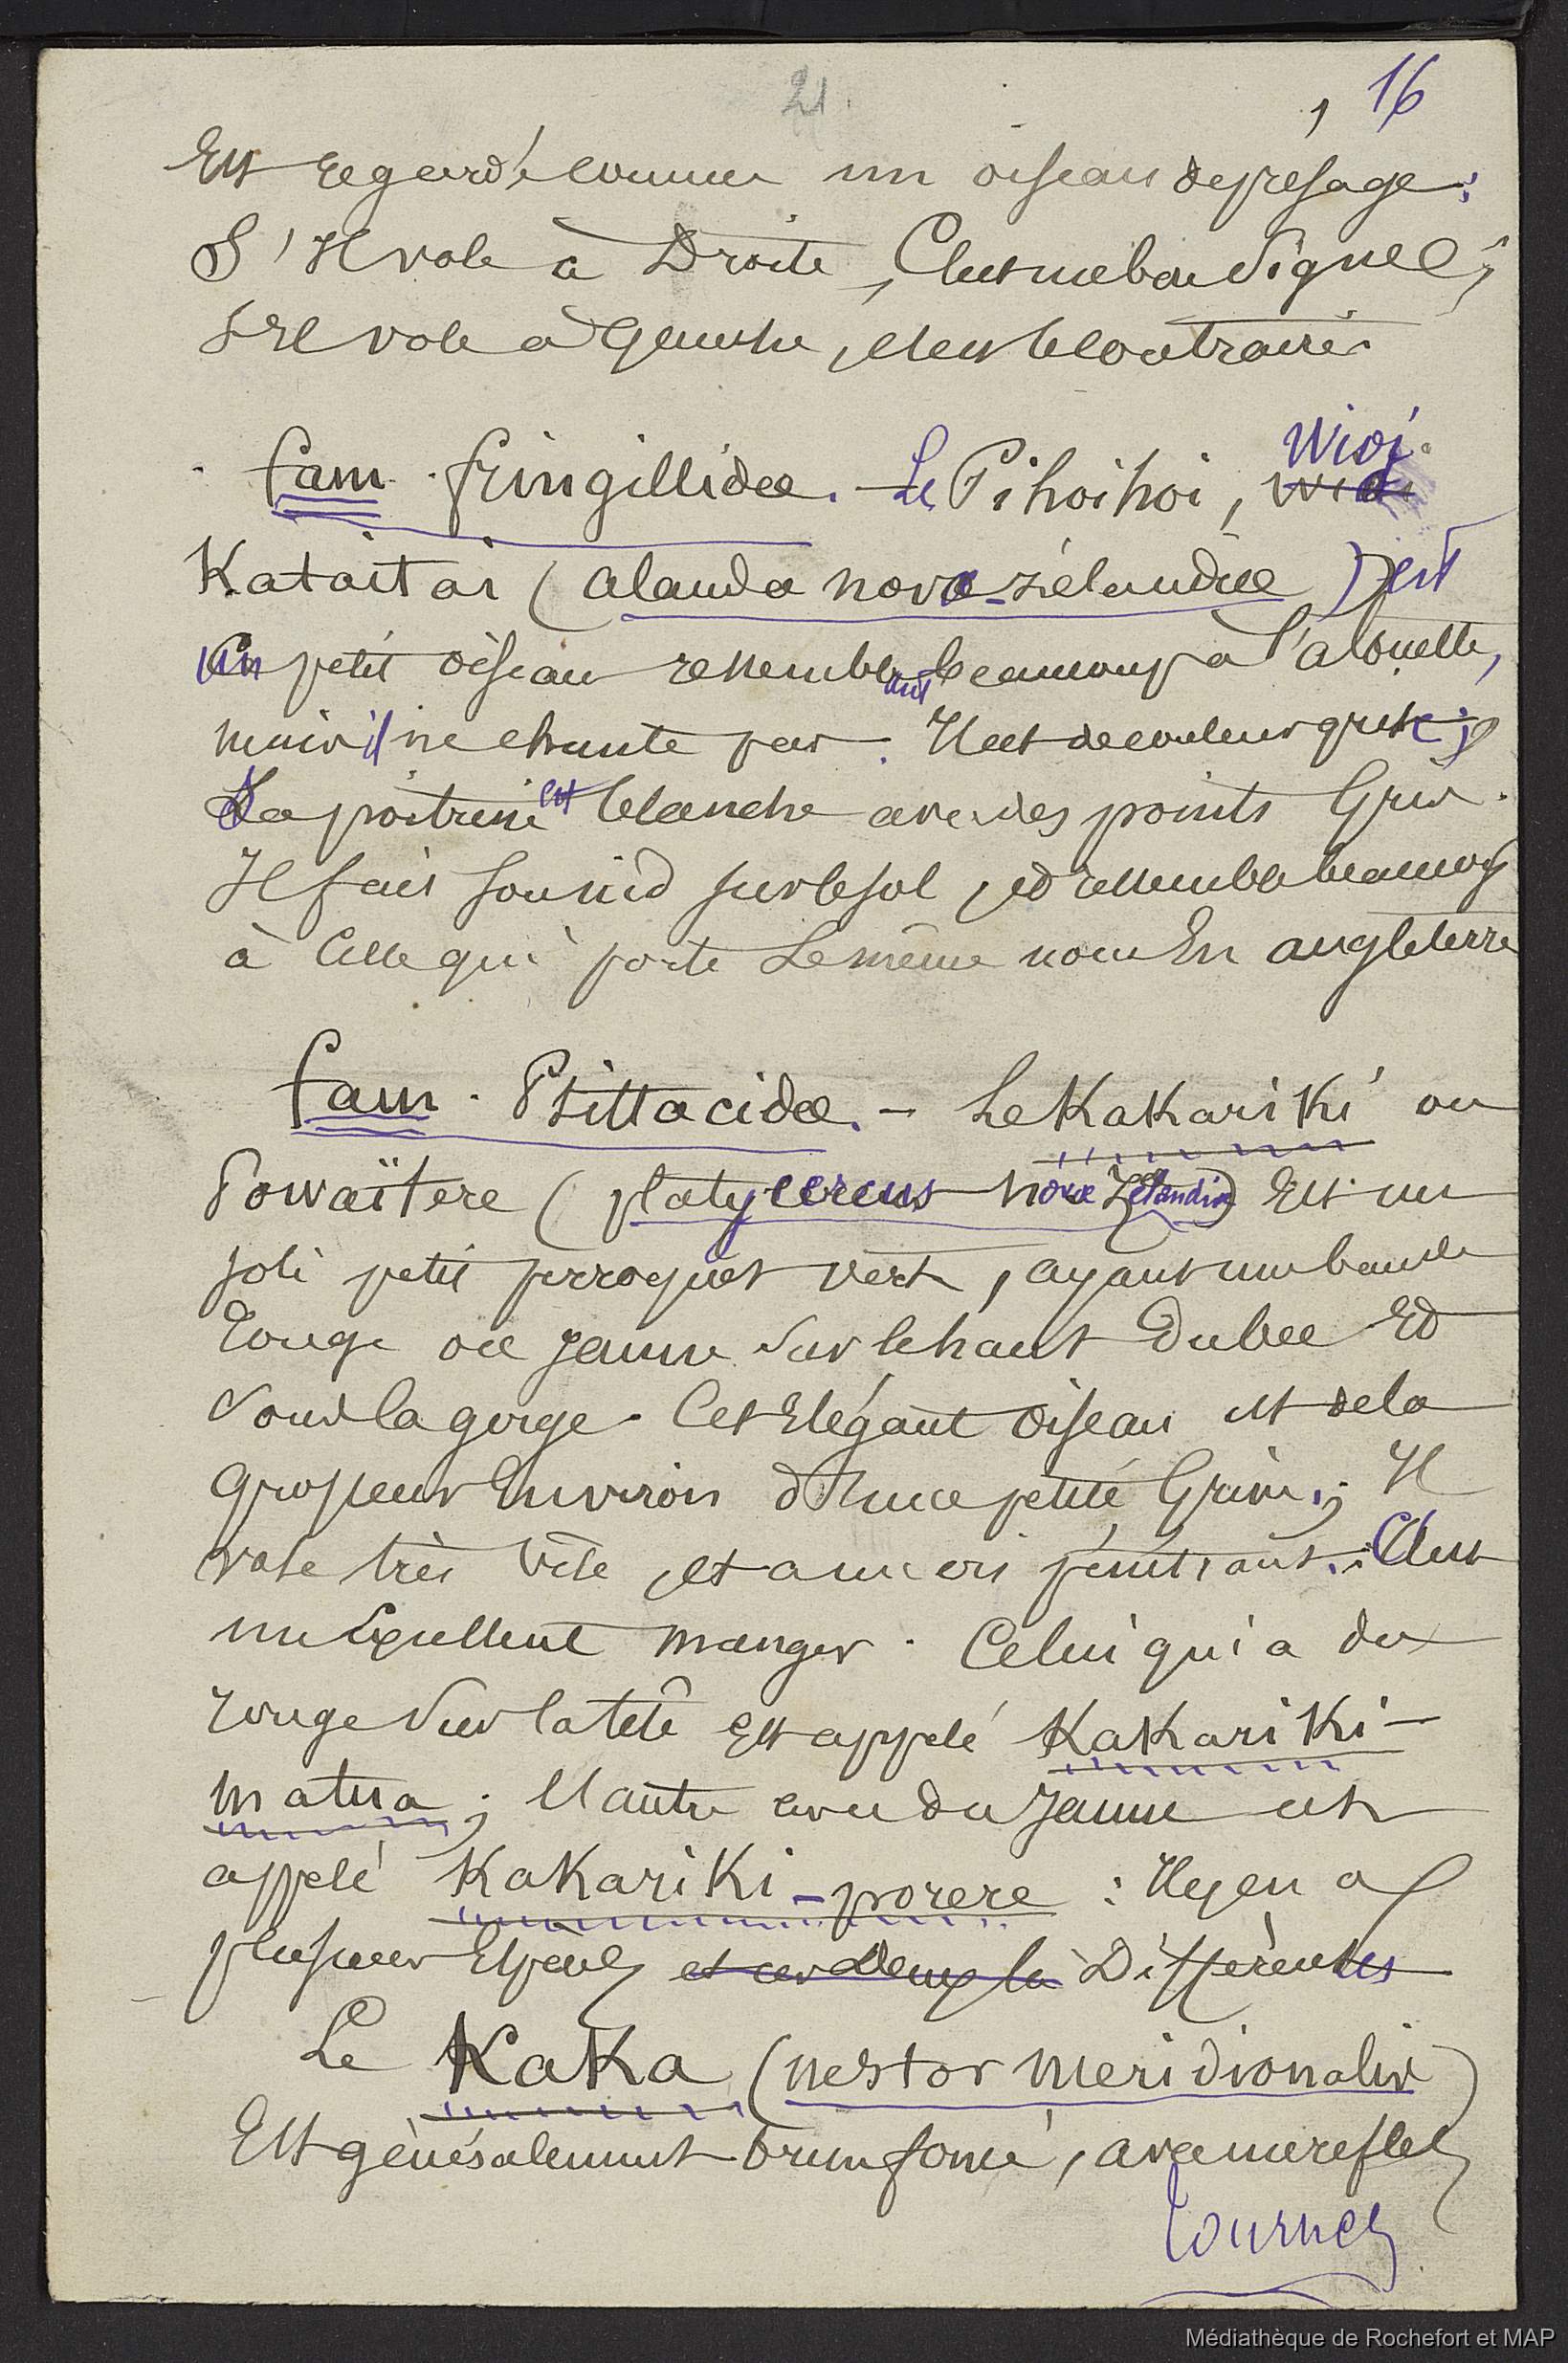 21. 16
Est regardé comme un oiseau de présage:
S'Il vole à Droite, C'est une bon Signe;
s'Il vole à Gauche, c'est le contraire.
Fam. fringillidæ. - Le Pihoihoi, Wioi
widi
Kataitai (alauda novæ-zélandiæ) est
un petit oiseau ressemblant beaucoup à l'alouette,
mais il ne chante pas. Il est de couleur grise;
La poitrine est blanche avec des points Gris.
Il fait son nid sur le sol, et ressemble beaucoup
à Celle qui porte Le même nom En angleterre
Fam. Psittacidæ. - Le Kakariki ou
Powaïtere (platycercus novæ Zélandiæ) Est un
joli petit perroquet vert, ayant une bande
rouge ou jaune Sur le haut Du bec Et
Sous la gorge. Cet Elégant oiseau est de la
Grosseur Environ d'une petite Grive; Il
vole très vite, et a un cri pénétrant. C'est
un Excellent manger. Celui qui a du
rouge Sur la tête Est appelé Kakariki-
matua; l'autre avec du Jaune est
appelé Kakariki-porere: Il y en a
plusieurs Espèces et ces Deux là Différentes
Le Kaka (nestor meridionalis)
Est généralement brun foncé, avec un reflet
tournez
Médiathèque de Rochefort et MAP